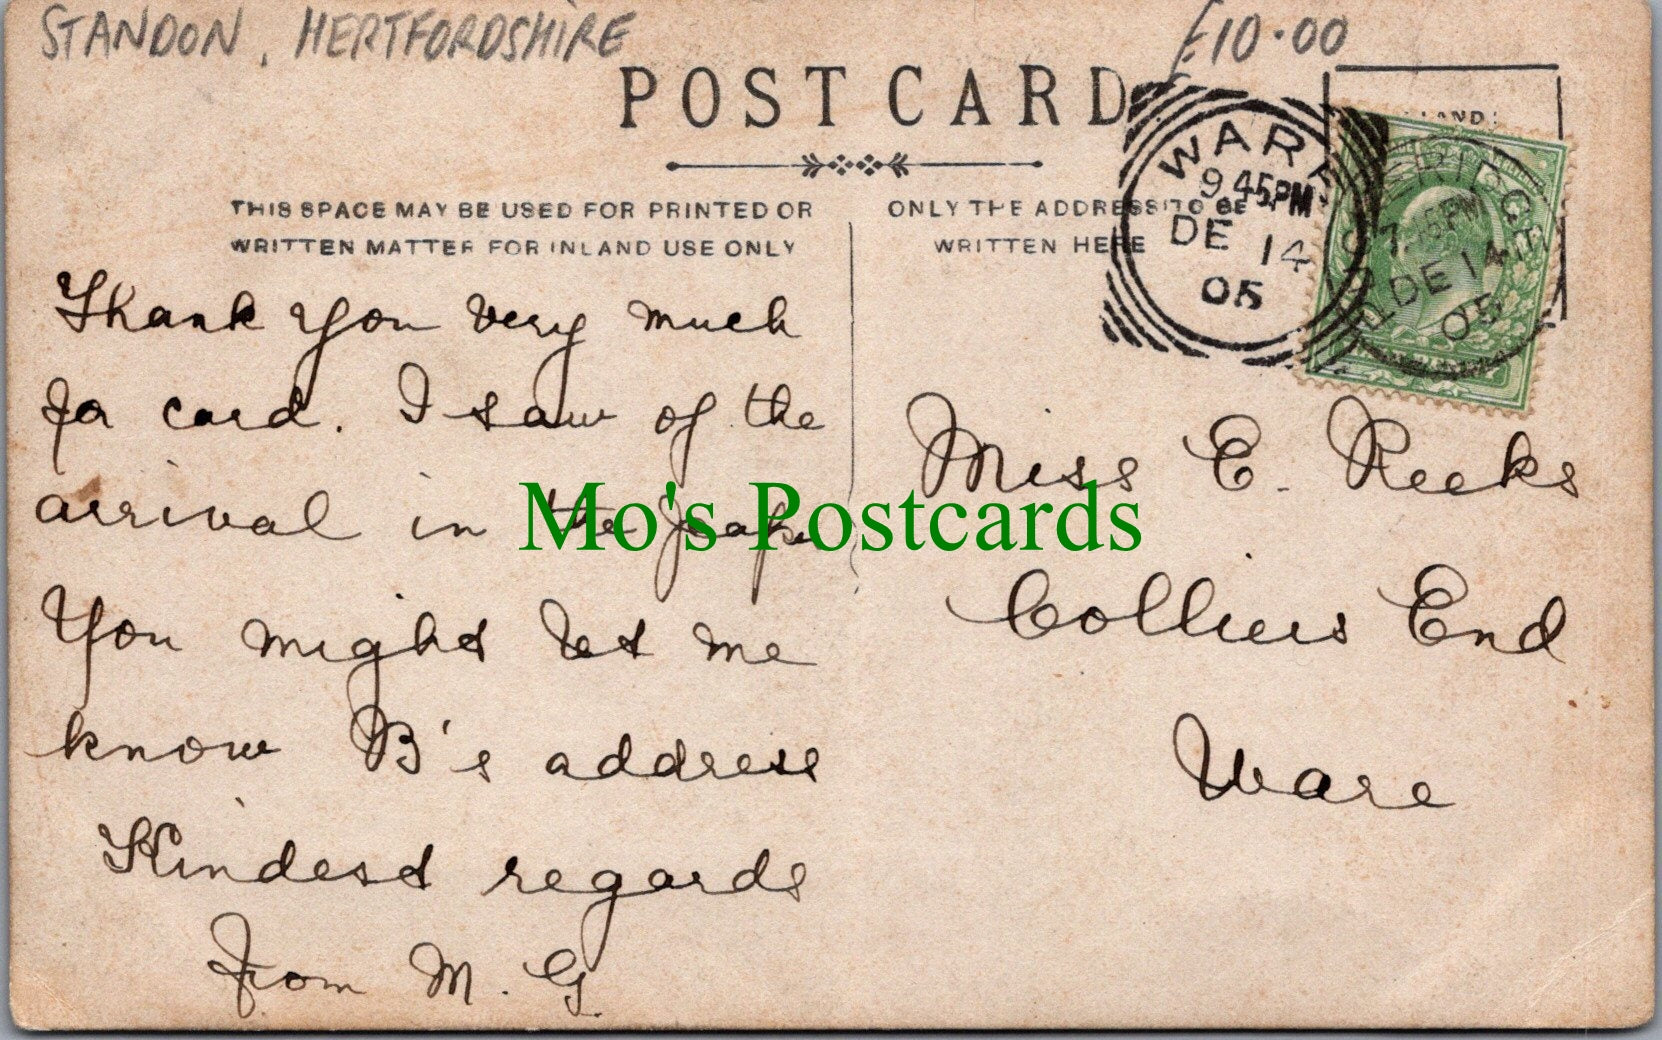 STANDON, HERTFORDSHIRE
£10.00
POST CARD
THIS SPACE MAY BE USED FOR PRINTED OR
WRITTEN MATTER FOR INLAND USE ONLY
ONLY THE ADDRESS TO BE
WRITTEN HERE
WARE
9.45PM
DE 14
05
DE 14
05
Thank you very much
for card. I saw of the
arrival in the paper
You might let me
know B's address
Kindest regards
from M. G.
Miss E. Reeks
Colliers End
Ware
Mo's Postcards